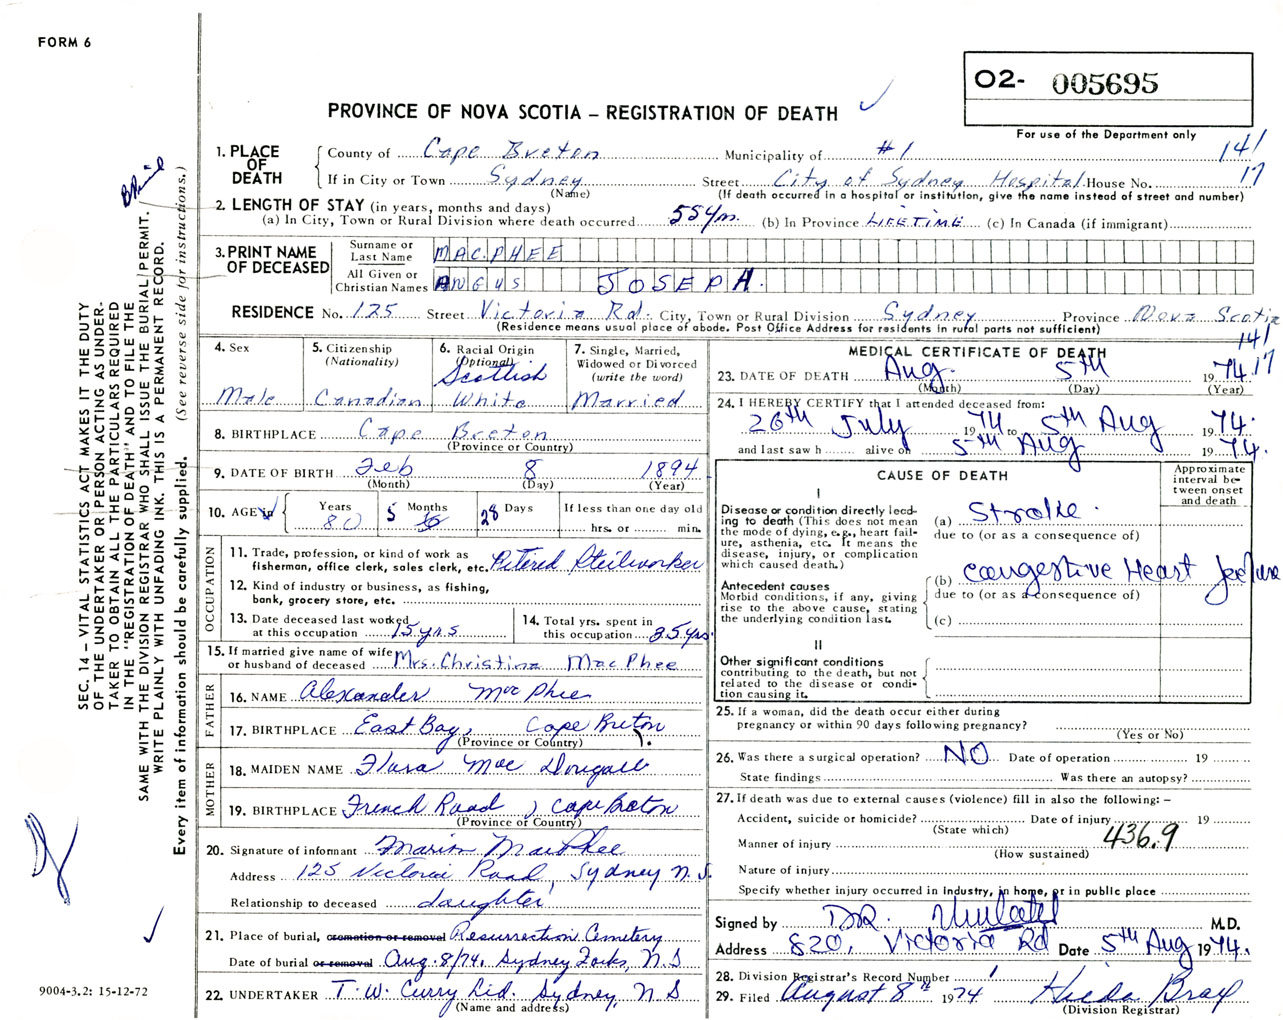 FORM 6
O2- 005695
For use of the Department only
PROVINCE OF NOVA SCOTIA – REGISTRATION OF DEATH
141
17
1. PLACE OF DEATH
County of Cape Breton Municipality of #1
If in City or Town Sydney Street City of Sydney Hospital House No.
(Name) (If death occurred in a hospital or institution, give the name instead of street and number)
2. LENGTH OF STAY (in years, months and days)
(a) In City, Town or Rural Division where death occurred 55 yrs. (b) In Province LIFETIME (c) In Canada (if immigrant)
3. PRINT NAME OF DECEASED
Surname or Last Name MAC.PHEE
All Given or Christian Names ANGUS JOSEPH.
RESIDENCE No. 125 Street Victoria Rd. City, Town or Rural Division Sydney Province Nova Scotia
(Residence means usual place of abode. Post Office Address for residents in rural parts not sufficient)
141
17
4. Sex
Male
5. Citizenship (Nationality)
Canadian
6. Racial Origin (Optional)
Scottish
White
7. Single, Married, Widowed or Divorced (write the word)
Married
8. BIRTHPLACE Cape Breton
(Province or Country)
9. DATE OF BIRTH Feb 8 1894
(Month) (Day) (Year)
10. AGE in Years Months Days If less than one day old
80 5 28 hrs. or min.
OCCUPATION
11. Trade, profession, or kind of work as fisherman, office clerk, sales clerk, etc. Retired Steilworker
12. Kind of industry or business, as fishing, bank, grocery store, etc.
13. Date deceased last worked at this occupation 15 yrs
14. Total yrs. spent in this occupation 35 yrs.
15. If married give name of wife or husband of deceased Mrs. Christina MacPhee
FATHER
16. NAME Alexander MacPhee
17. BIRTHPLACE East Bay, Cape Breton.
(Province or Country)
MOTHER
18. MAIDEN NAME Flora Mac Dougall
19. BIRTHPLACE French Road, Cape Breton
(Province or Country)
20. Signature of informant Marion MacPhee
Address 125 Victoria Road, Sydney N.S.
Relationship to deceased daughter
21. Place of burial, cremation or removal Resurrection Cemetery
Date of burial or removal Aug. 8/74. Sydney Forks, N.S
22. UNDERTAKER T. W. Curry Ltd. Sydney, N S
(Name and address)
MEDICAL CERTIFICATE OF DEATH
23. DATE OF DEATH Aug. 5th 19 74
(Month) (Day) (Year)
24. I HEREBY CERTIFY that I attended deceased from:
26th July 19 74 to 5th Aug 19 74.
and last saw h alive on 5th Aug 19 74.
CAUSE OF DEATH
Approximate interval between onset and death
I
Disease or condition directly leading to death (This does not mean the mode of dying, e.g., heart failure, asthenia, etc. It means the disease, injury, or complication which caused death.)
(a) Stroke.
due to (or as a consequence of)
Antecedent causes
Morbid conditions, if any, giving rise to the above cause, stating the underlying condition last.
(b) Congestive Heart
due to (or as a consequence of)
(c)
II
Other significant conditions contributing to the death, but not related to the disease or condition causing it.
25. If a woman, did the death occur either during pregnancy or within 90 days following pregnancy?
(Yes or No)
26. Was there a surgical operation? NO Date of operation 19
State findings Was there an autopsy?
27. If death was due to external causes (violence) fill in also the following: –
Accident, suicide or homicide? Date of injury 19
(State which)
436.9
Manner of injury
(How sustained)
Nature of injury
Specify whether injury occurred in industry, in home, or in public place
Signed by DR. M.D.
Address 820, Victoria Rd Date 5th Aug 1974.
28. Division Registrar's Record Number 1
29. Filed August 8th 1974 Hilda Bray
(Division Registrar)
SEC. 14 – VITAL STATISTICS ACT MAKES IT THE DUTY
OF THE UNDERTAKER OR PERSON ACTING AS UNDER-
TAKER TO OBTAIN ALL THE PARTICULARS REQUIRED
IN THE "REGISTRATION OF DEATH" AND TO FILE THE
SAME WITH THE DIVISION REGISTRAR WHO SHALL ISSUE THE BURIAL PERMIT.
WRITE PLAINLY WITH UNFADING INK. THIS IS A PERMANENT RECORD.
Every item of information should be carefully supplied. (See reverse side for instructions.)
9004-3.2: 15-12-72